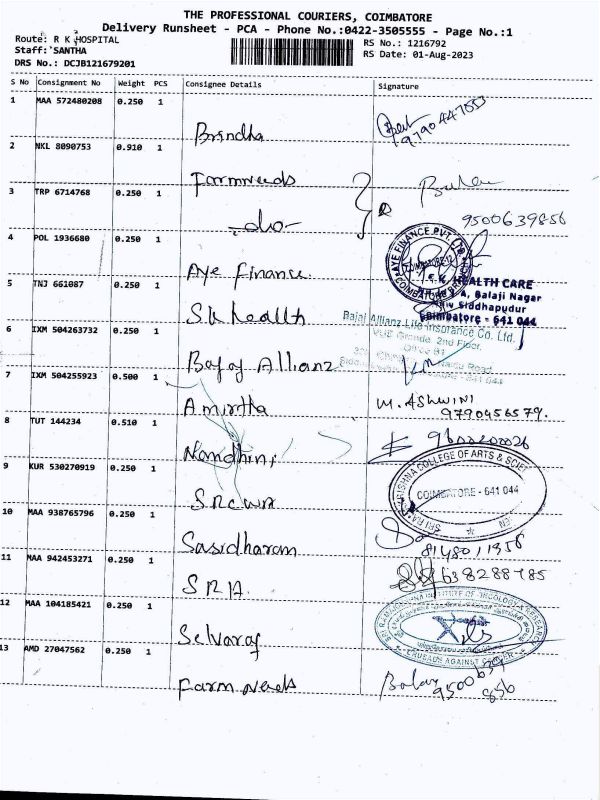 THE PROFESSIONAL COURIERS, COIMBATORE
Delivery Runsheet - PCA - Phone No.:0422-3505555 - Page No.:1
Route: R K HOSPITAL
RS No.: 1216792
Staff: SANTHA
RS Date: 01-Aug-2023
DRS No.: DCJB121679201
S No Consignment No Weight PCS Consignee Details Signature
1 MAA 572480208 0.250 1 Brindha
2 NKL 8090753 0.910 1 Farmneeds
3 TRP 6714768 0.250 1 -do- 9500639856
4 POL 1936680 0.250 1 Aye Finance.
AYE FINANCE PVT
COIMBATORE-12
5 TNJ 661087 0.250 1 S k health
HEALTH CARE
A, Balaji Nagar
Siddhapudur
Coimbatore - 641 044
6 IXM 504263732 0.250 1 Bajaj Allianz
Bajaj Allianz Life Insurance Co. Ltd.
VUE Grande, 2nd Floor,
7 IXM 504255923 0.500 1 Amirtha M. ASHWINI
9790456579.
8 TUT 144234 0.510 1 Nandhini
9 KUR 530270919 0.250 1 SRCWA
KRISHNA COLLEGE OF ARTS & SCIEN
COIMBATORE - 641 044
10 MAA 938765796 0.250 1 Sasidharam
11 MAA 942453271 0.250 1 SRH
12 MAA 104185421 0.250 1 Selvaraj
INSTITUTE OF ONCOLOGY & RESEARCH
CRUSADE AGAINST CANCER
13 AMD 27047562 0.250 1 Farm needs Balan
9500639
856